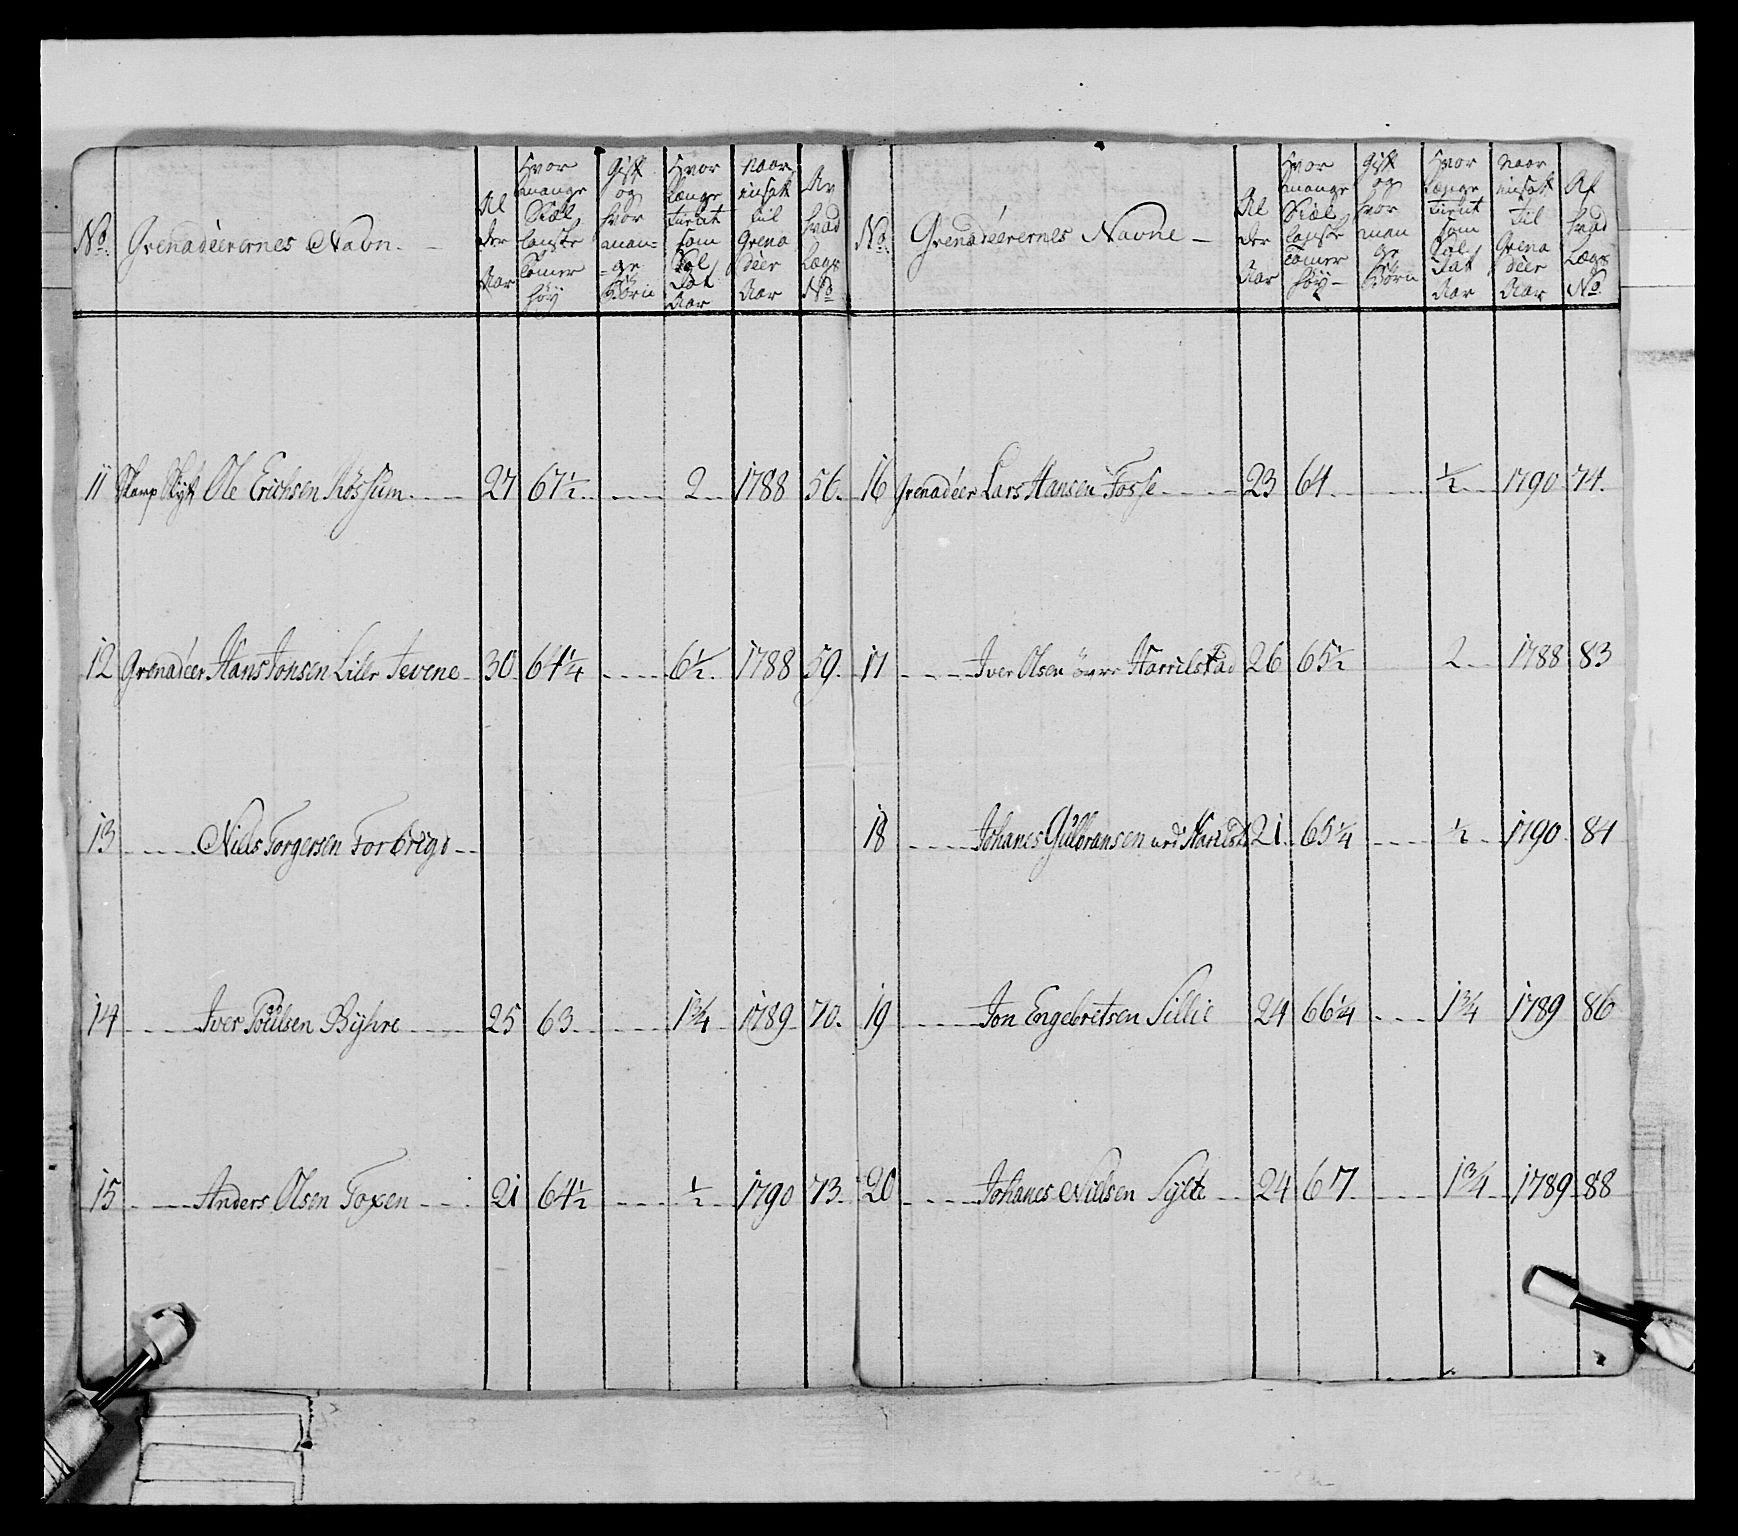 No. Grenadeerernes Navn. Al der Aar Hvor mange Siæl landske Tomer høy Gift og hvor man= =ge Børn Hvor længe tient som Sol dat Aar Naar indsat til Grena deer Aar Av hvad Lægs No
11 Ole Erichsen Røssum 27 67½ 2 1788 56.
12 Grenadeer Hans Jonsen Lille Tevene 30 64¼ 6½ 1788 59.
13 Niels Torgersen Forbrigd
14 Iver Poulsen Byhre 25 63 1¾ 1789 70.
15 Anders Olsen Toxen 21 64½ ½ 1790 73.
No. Grenadeerernes Navne Al der Aar Hvor mange Siæl landske Tomer høy Gift og hvor man ge Børn Hvor længe tient som Sol dat Aar Naar indsat til Grena deer Aar Af hvad Lægs No.
16 Grenadeer Lars Hansen Fosse 23 64 ½ 1790 74.
17 Iver Olsen øvre Harrilstad 26 65½ 2 1788 83
18 Johanes Gulbransen 21 65¼ ½ 1790 84
19 Jon Engebretsen Sillie 24 66¼ 1¾ 1789 86
20 Johanes Nielsen Sylte 24 67 1¾ 1789 88